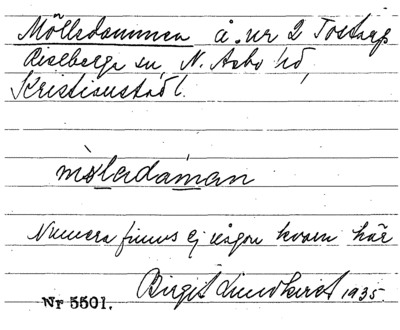 Mölledammen å nr 2 Tostarp
Riseberga sn, N. Åsbo hd,
Kristianstad l.
möladaman
Numera finns ej någon kvarn här
Birgit Lundkvist 1935.
Nr 5501.